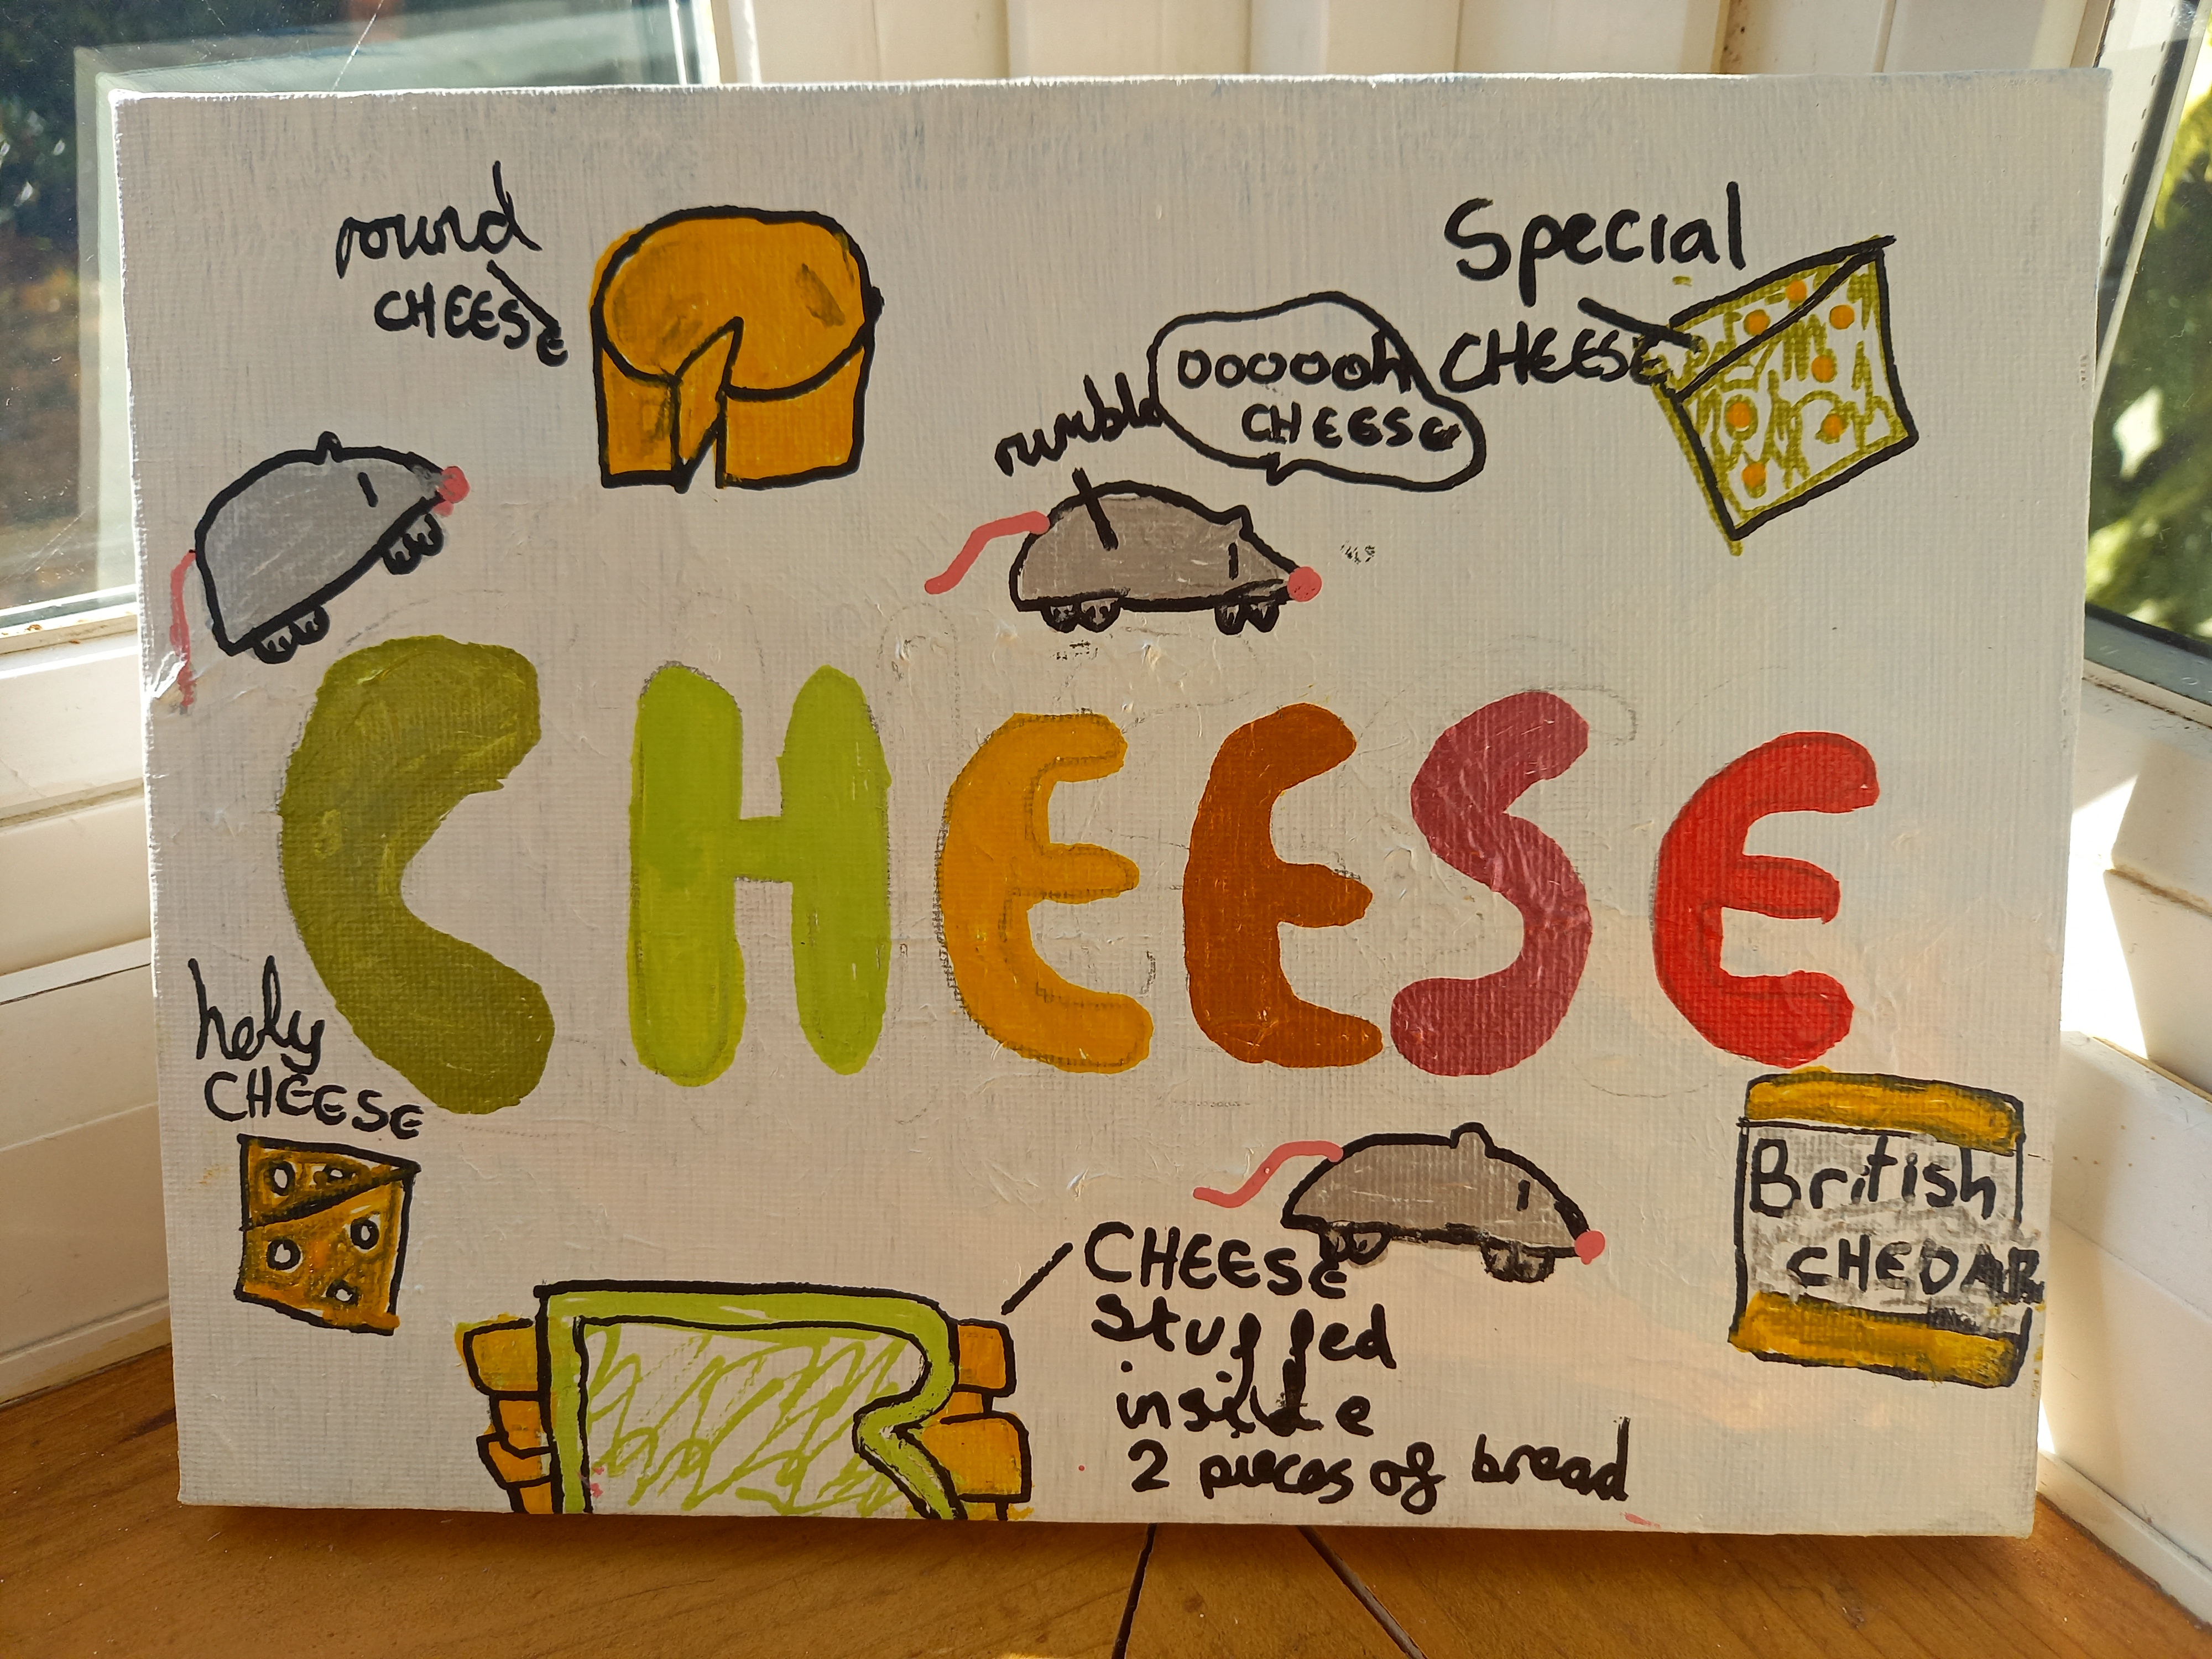 round
CHEESE
Special
CHEESE
OOOOOOh
CHEESE
rumble
CHEESE
holy
CHEESE
British
CHEDAR
CHEESE
Stuffed
inside
2 pieces of bread